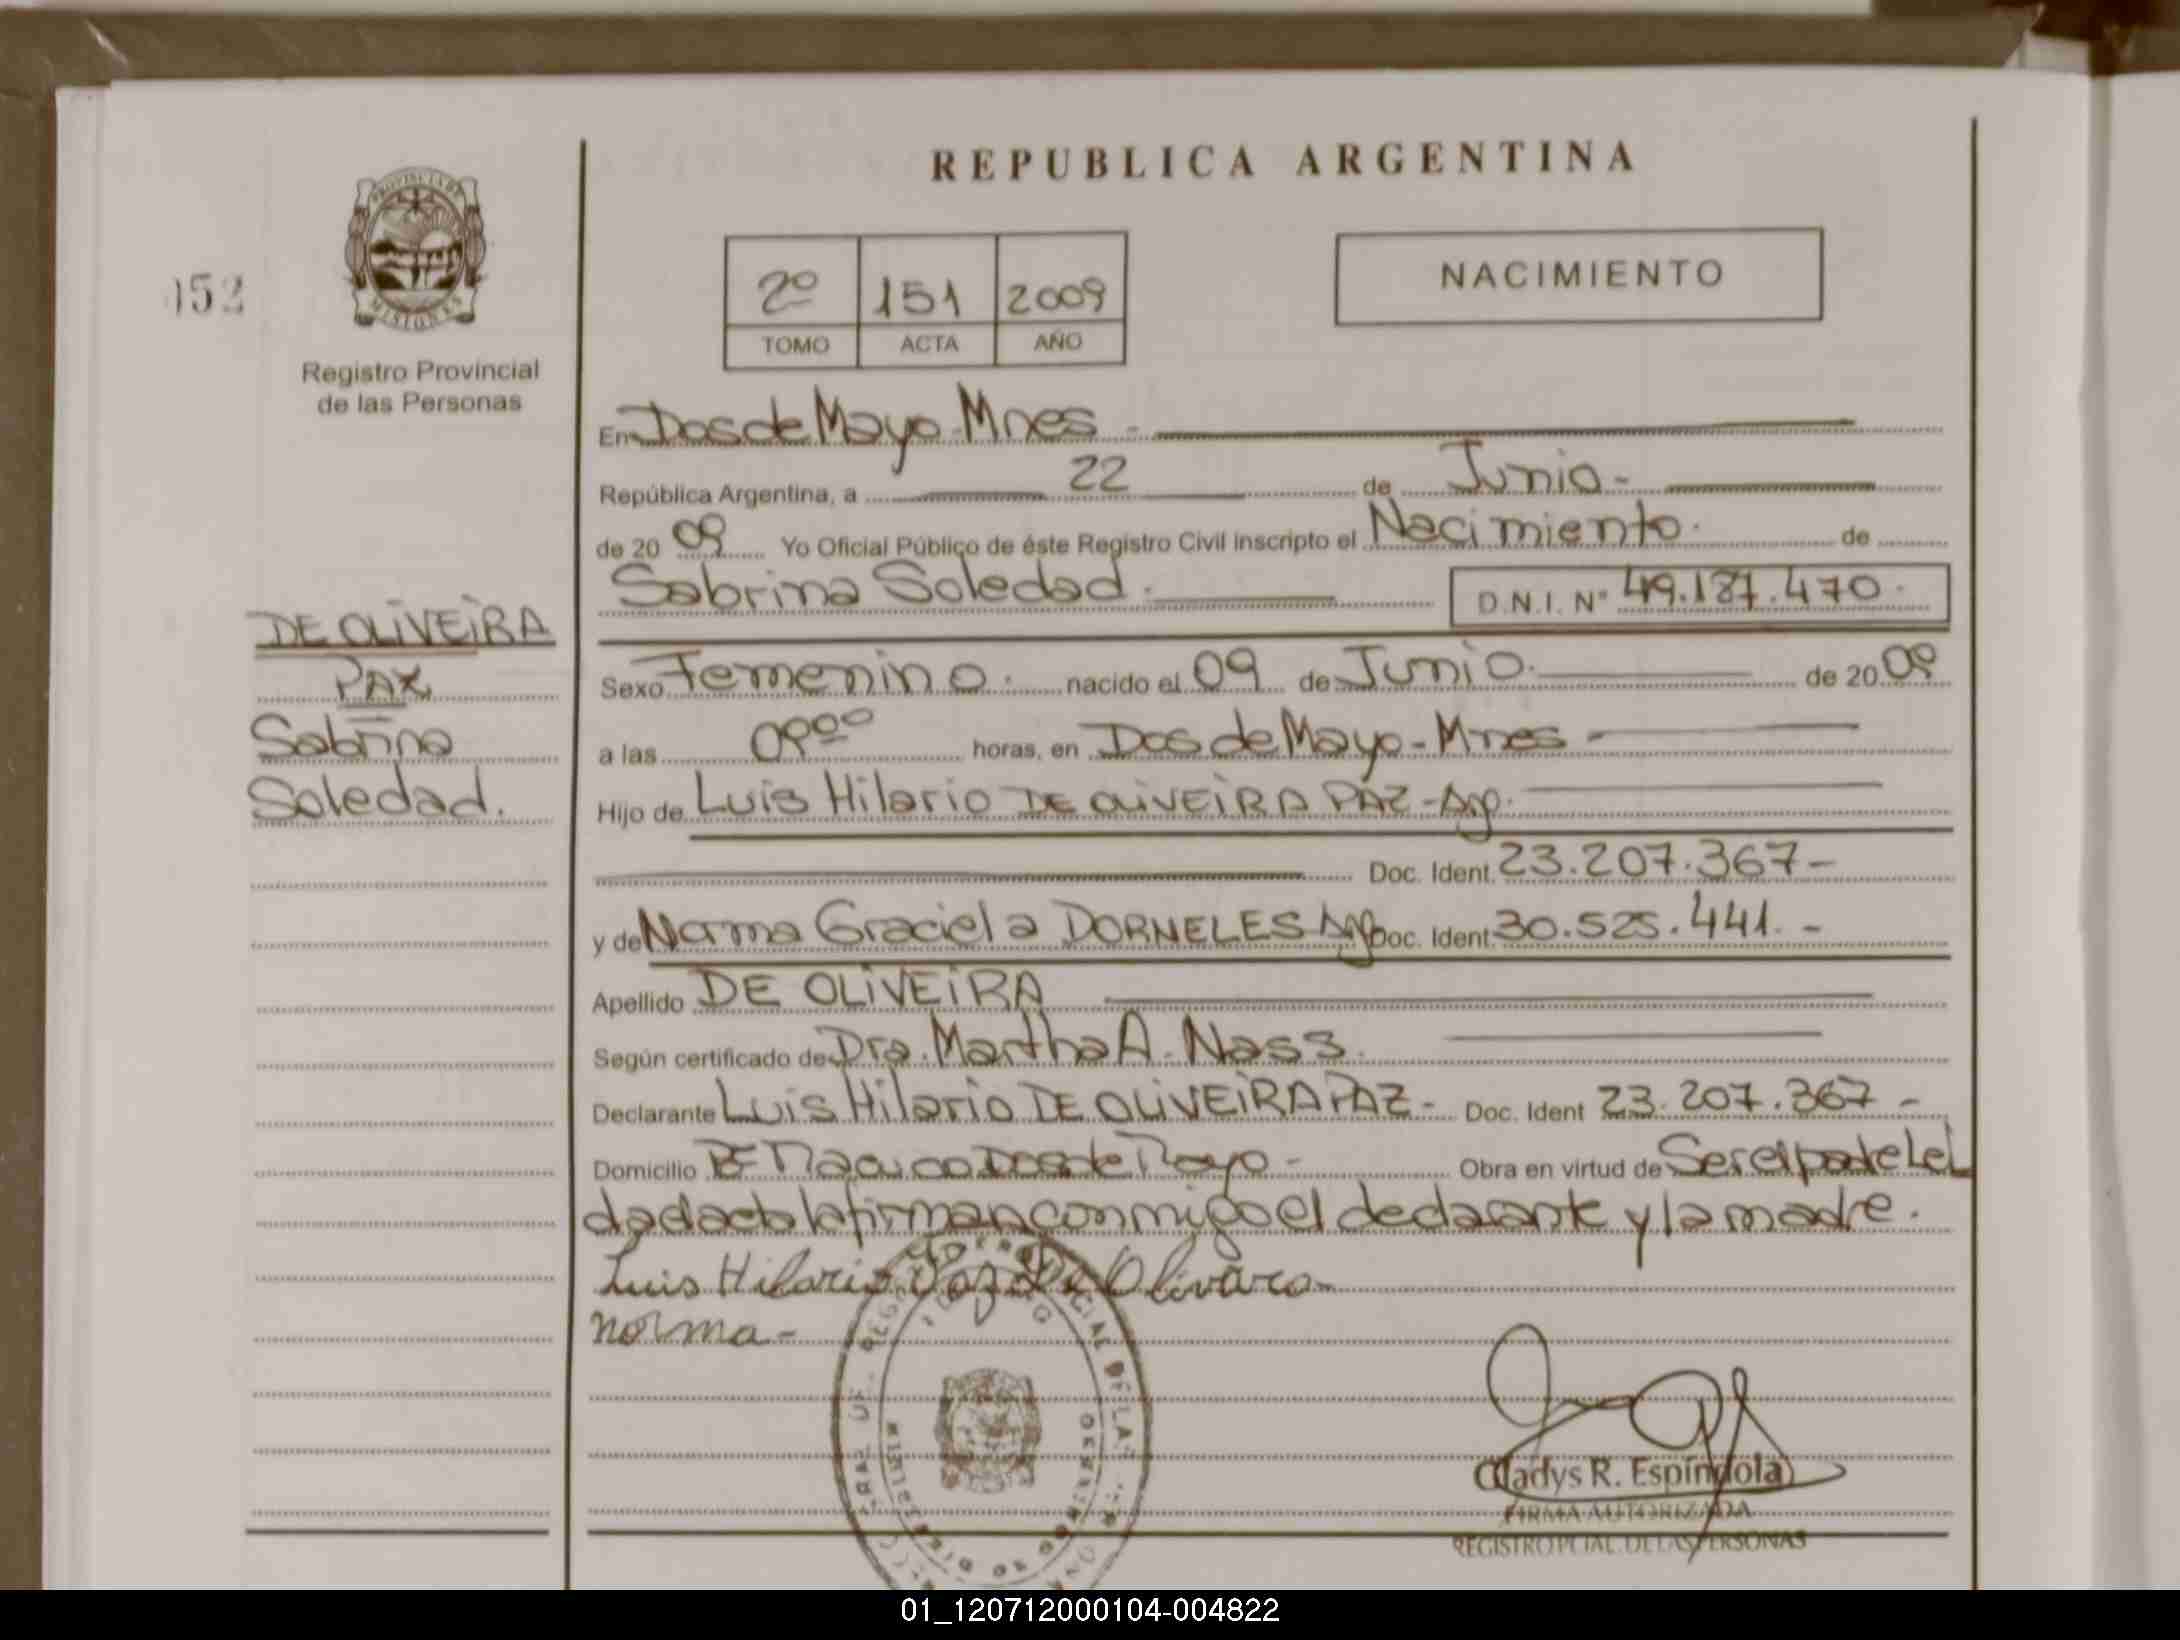 REPUBLICA ARGENTINA
152
PROVINCIA DE
MISIONES
Registro Provincial
de las Personas
2º 151 2009
TOMO ACTA AÑO
NACIMIENTO
En Dos de Mayo - Mnes -
República Argentina, a 22 de Junio -
de 20 09 Yo Oficial Público de éste Registro Civil inscripto el Nacimiento. de
Sabrina Soledad. D.N.I. Nº 49.187.470.
DE OLIVEIRA
PAZ
Sabrina
Soledad.
Sexo Femenino. nacido el 09 de Junio. de 20 09
a las 09ºº horas, en Dos de Mayo - Mnes -
Hijo de Luis Hilario DE OLIVEIRA PAZ - Arg.
Doc. Ident. 23.207.367 -
y de Norma Graciela DORNELES Arg. Doc. Ident. 30.525.441. -
Apellido DE OLIVEIRA
Según certificado de Dra. Martha A. Nass.
Declarante Luis Hilario DE OLIVEIRA PAZ - Doc. Ident 23.207.367 -
Domicilio Dos de Mayo - Obra en virtud de Ser el padre Lei
da el acta la firman conmigo el declarante y la madre.
Luis Hilario Paz De Olivara
Norma -
Gladys R. Espíndola
FIRMA AUTORIZADA
REGISTRO PCIAL. DE LAS PERSONAS
01_120712000104-004822